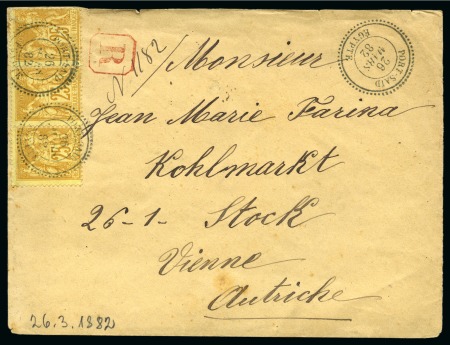 R
N 1182
PORT-SAÏD
26
MARS
82
EGYPTE
Monsieur
Jean Marie Farina
Kohlmarkt
26-1- Stock
Vienne
Autriche
26.3.1882
25
25